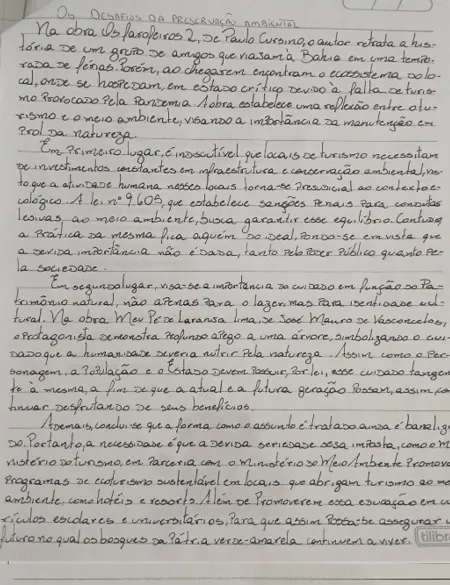 Os Desafios da preservação ambiental
Na obra Os farofeiros 2, de Paulo Cursino, o autor retrata a his-
tória de um grupo de amigos que viajam à Bahia em uma tempo-
rada de férias. Porém, ao chegarem encontram o ecossistema do lo-
cal, onde se hospedam, em estado crítico devido a falta de turis-
mo provocado pela pandemia. A obra estabelece uma reflexão entre o tu-
rismo e o meio ambiente, visando a importância da manutenção em
prol da natureza.
Em primeiro lugar, é indiscutível que locais de turismo necessitam
de investimentos constantes em infraestrutura e conservação ambiental, vis-
to que a atividade humana nesses locais torna-se prejudicial ao contexto e-
cológico. A lei nº 9.605, que estabelece sanções penais para condutas
lesivas ao meio ambiente, busca garantir esse equilíbrio. Contudo,
a prática da mesma fica aquém do ideal, pondo-se em vista que
a devida importância não é dada, tanto pelo poder público quanto pe-
la sociedade.
Em segundo lugar, visa-se a importância do cuidado em função do Pa-
trimônio natural, não apenas para o lazer, mas para identidade cul-
tural. Na obra Meu Pé de Laranja lima, de José Mauro de Vasconcelos,
o protagonista demonstra profundo apego a uma árvore, simbolizando o cui-
dado que a humanidade deveria nutrir pela natureza. Assim como o per-
sonagem, a população e o Estado devem possuir, por lei, esse cuidado tangen-
te a mesma, a fim de que a atual e a futura geração possam, assim, con
tinuar desfrutando de seus benefícios.
Ademais, conclui-se que a forma como o assunto é tratado ainda é banaliza
do. Portanto, a necessidade é que a devida seriedade seja imposta, como o Mi
nistério do turismo, em parceria com o Ministério do Meio Ambiente promova
programas de ecoturismo sustentável em locais que abrigam turismo ao me
ambiente, como hotéis e resorts. Além de promoverem essa educação em cu
rrículos escolares e universitários, para que assim possa-se assegurar u
futuro no qual os bosques da Pátria verde-amarela continuem a viver.
tilibra